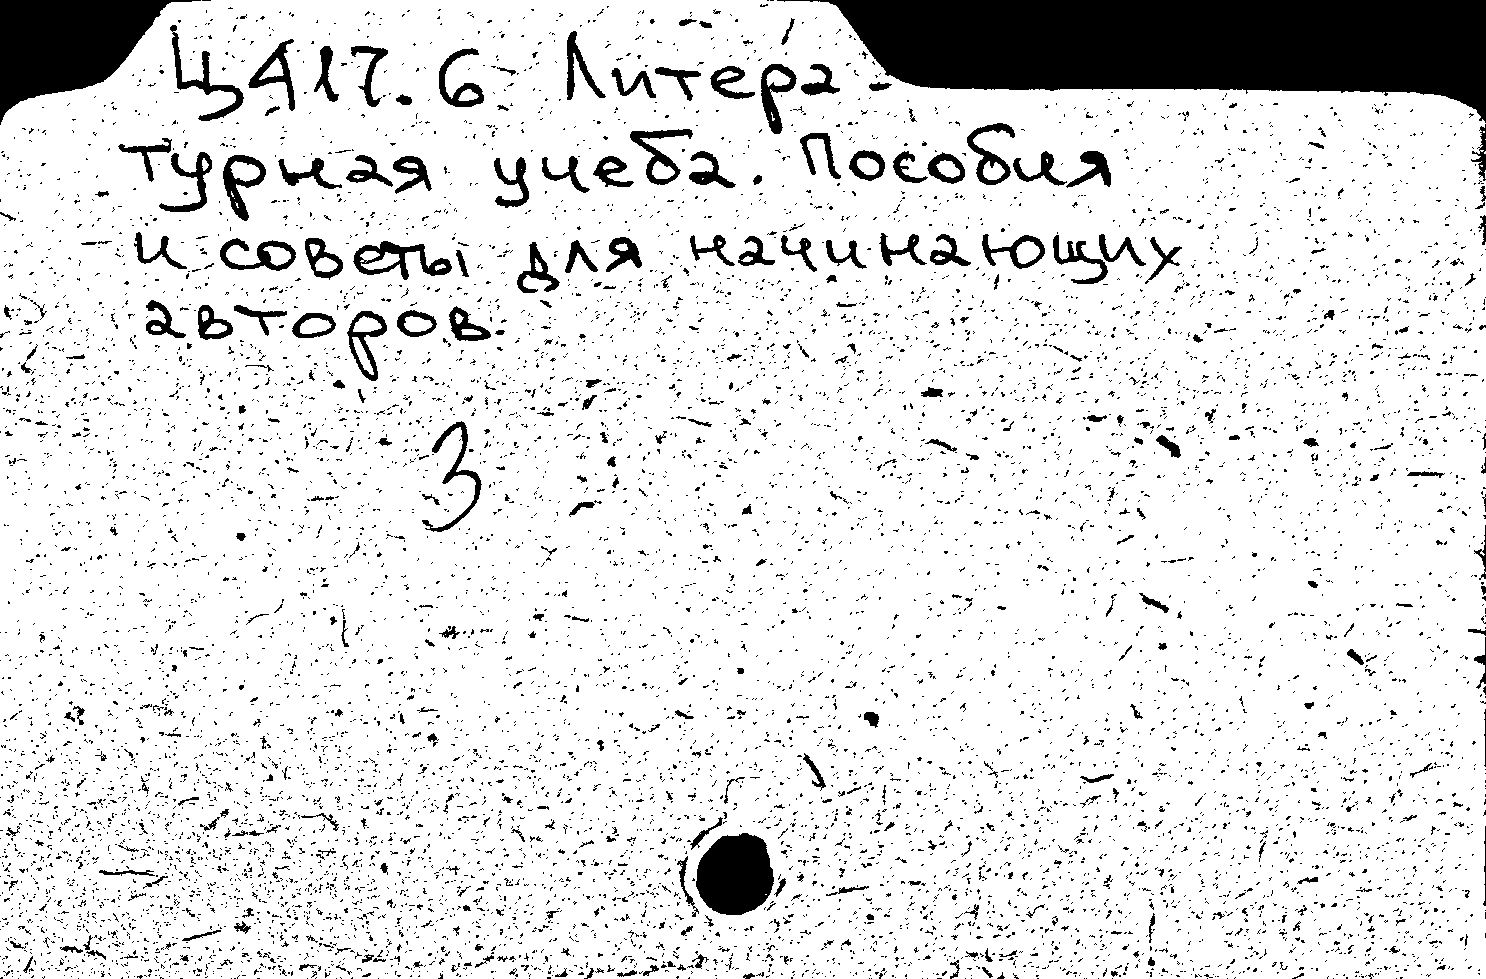 Ц417.6 Литера-
турная учеба. Пособия
и советы для начинающих
авторов.
3